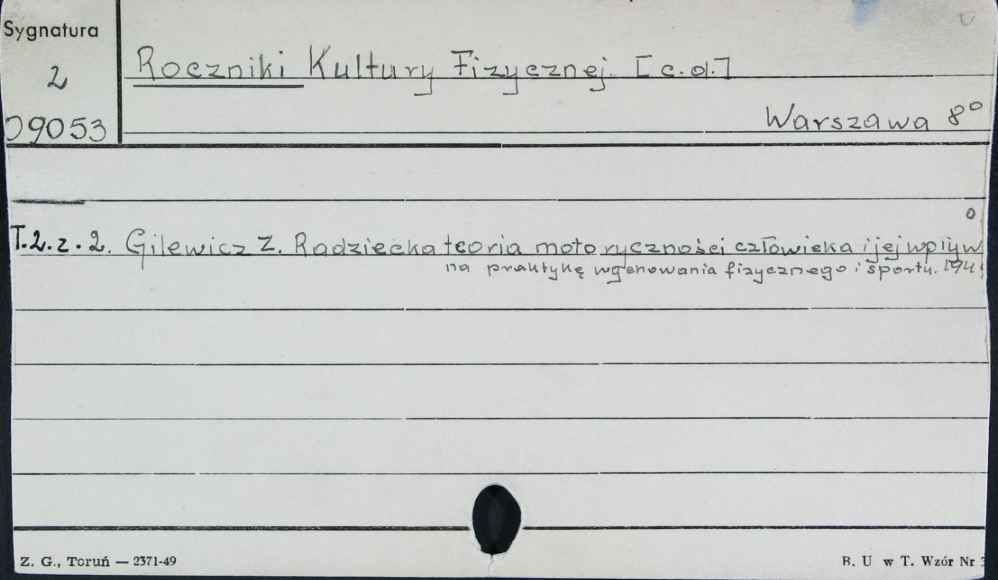 Sygnatura
2
09053
Roczniki Kultury Fizycznej. [c.d.]
Warszawa 8°
T.2.z.2. Gilewicz Z. Radziecka teoria motoryczności człowieka i jej wpływ
na praktykę wychowania fizycznego i sportu.
Z. G., Toruń — 2371-49
B. U w T. Wzór Nr 3